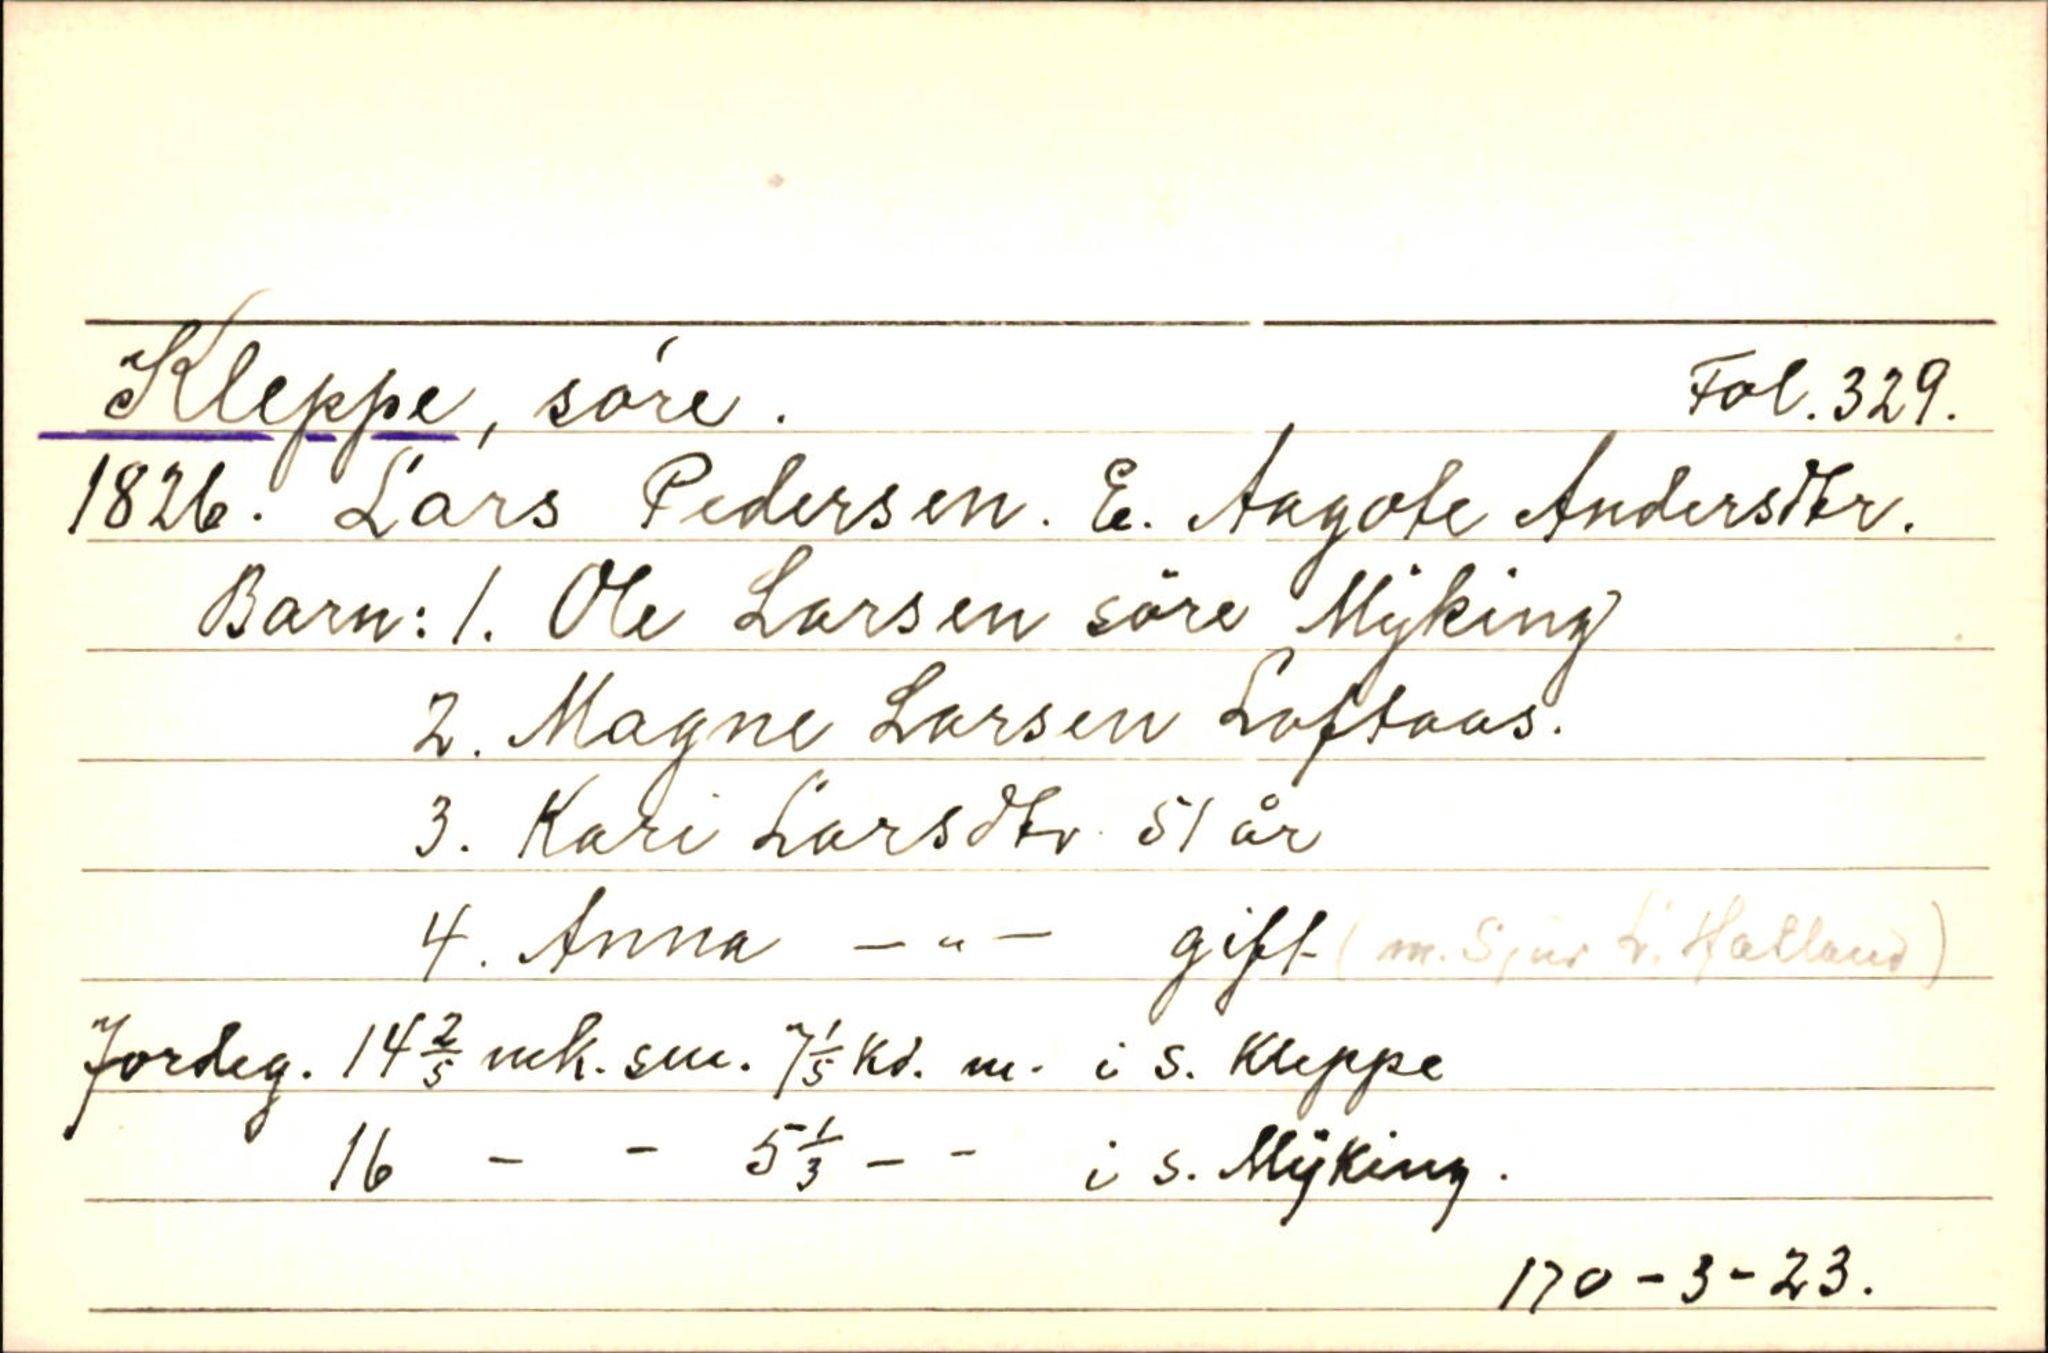 Kleppe, söre. Fol. 329.
1826. Lars Pedersen. E. Aagote Andersdtr.
Barn: 1. Ole Larsen söre Mÿking
2. Magne Larsen Loftaas.
3. Kari Larsdtr. 51 år
4. Anna – " – gift (m. Sjur L. Hatland)
Jordeg. 14 2/5 mk. sm. 7 1/5 Kd. m. i s. Kleppe
16 – – 5 1/3 – – i s. Mÿking.
170 – 3 – 23.